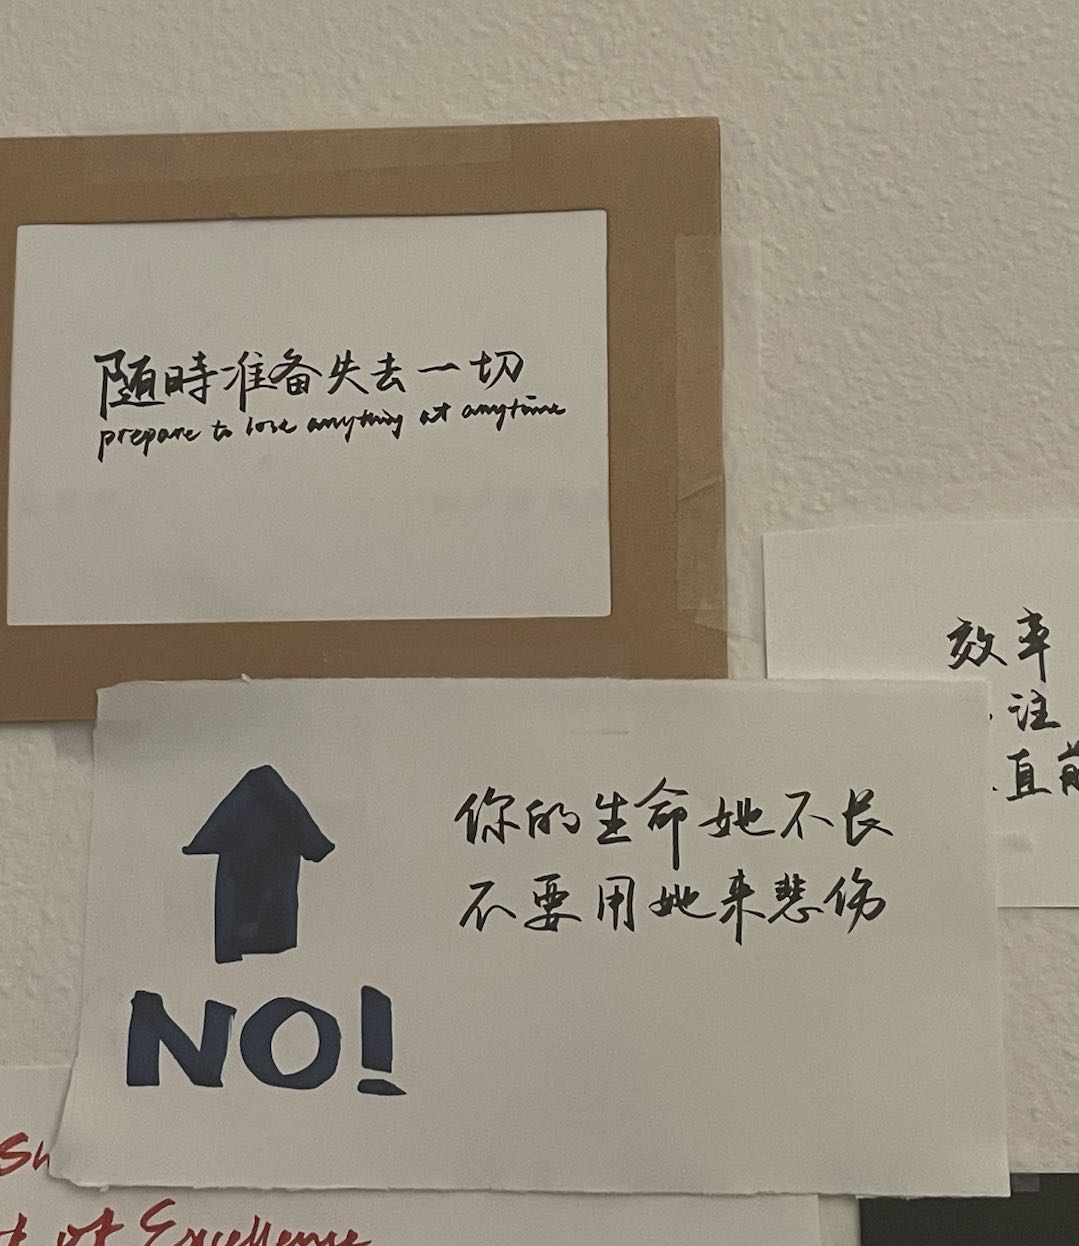 随時准备失去一切
prepare to lose anything at anytime
效率
注
直前
NO!
你的生命她不长
不要用她来悲伤
Sh
of Excellence